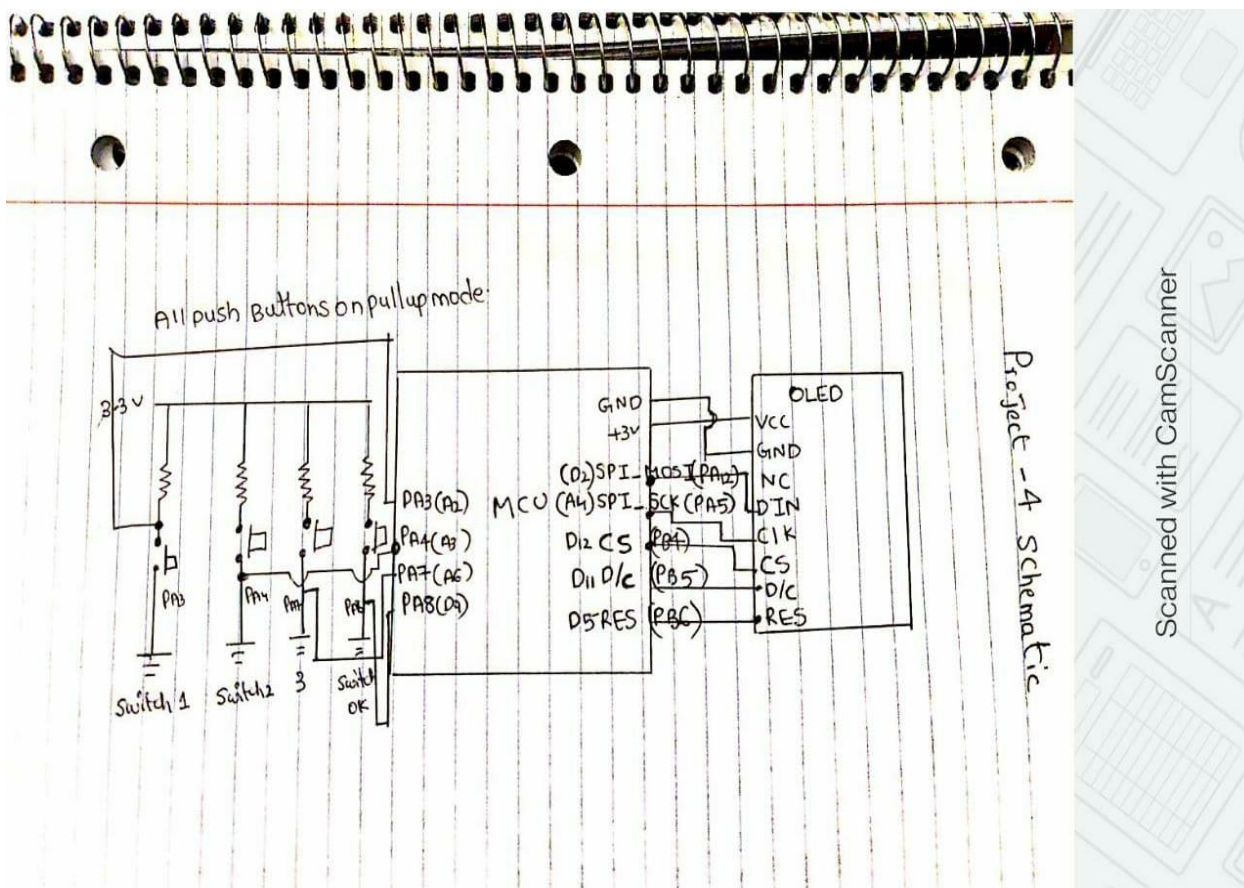 All push Buttons on pullup mode.
3.3V
PA3
PA4
PA7
PA8
Switch 1
Switch 2
3
Switch
OK
PA3(A2)
PA4(A3)
PA7(A6)
PA8(D9)
MCU
GND
+3V
(D2)SPI_MOSI(PA12)
(A4)SPI_SCK(PA5)
D12 CS (PB4)
D11 D/C (PB5)
D5 RES (PB6)
OLED
VCC
GND
NC
DIN
CLK
CS
D/C
RES
Project - 4 schematic
Scanned with CamScanner